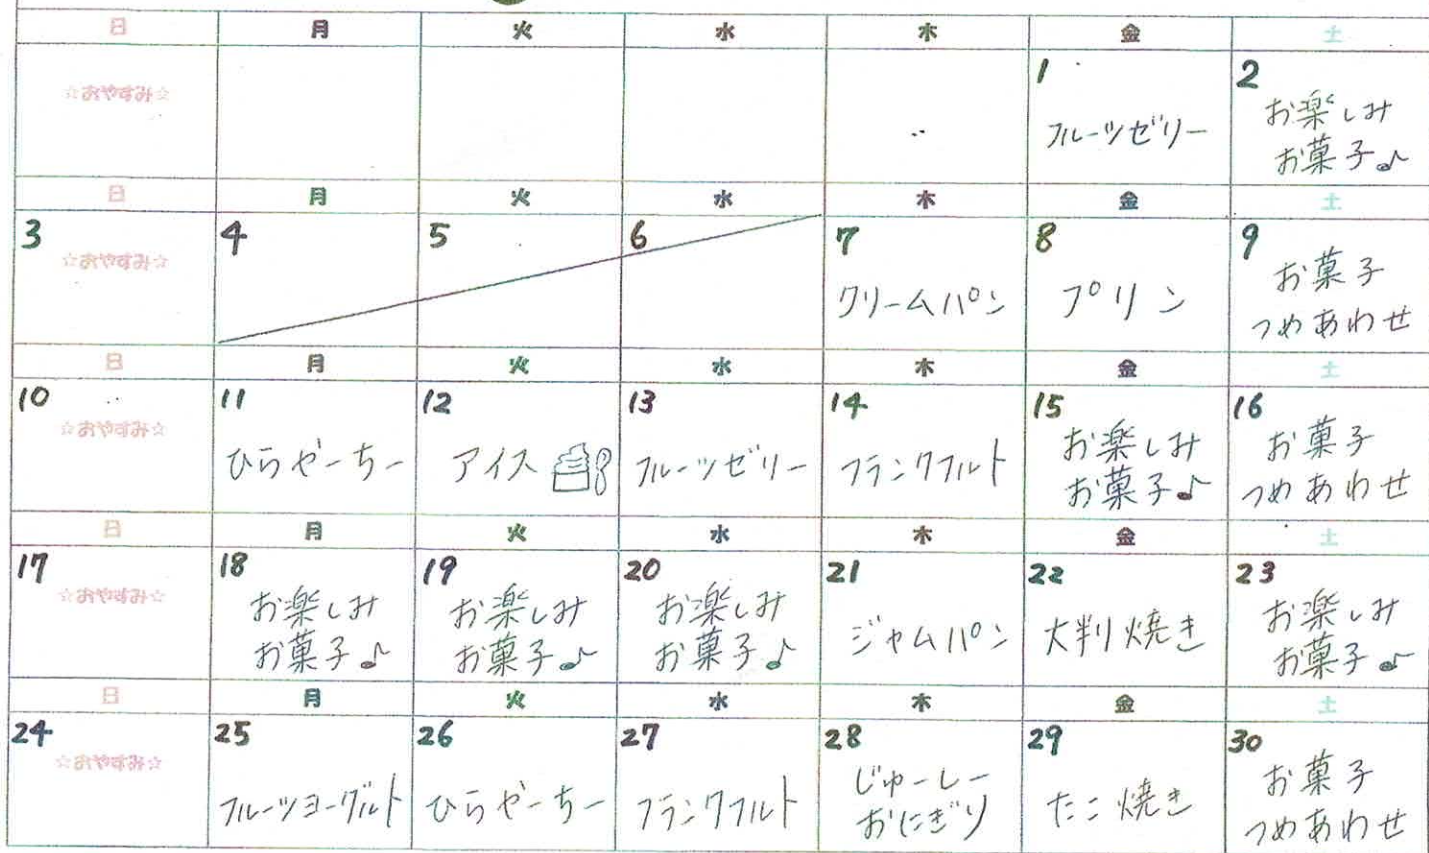 日 月 火 水 木 金 土
☆おやすみ☆
1 フルーツゼリー
2 お楽しみ
お菓子♪
日 月 火 水 木 金 土
3 ☆おやすみ☆
4
5
6
7 クリームパン
8 プリン
9 お菓子
つめあわせ
日 月 火 水 木 金 土
10 ☆おやすみ☆
11 ひらやーちー
12 アイス
13 フルーツゼリー
14 フランクフルト
15 お楽しみ
お菓子♪
16 お菓子
つめあわせ
日 月 火 水 木 金 土
17 ☆おやすみ☆
18 お楽しみ
お菓子♪
19 お楽しみ
お菓子♪
20 お楽しみ
お菓子♪
21 ジャムパン
22 大判焼き
23 お楽しみ
お菓子♪
日 月 火 水 木 金 土
24 ☆おやすみ☆
25 フルーツヨーグルト
26 ひらやーちー
27 フランクフルト
28 じゅーしー
おにぎり
29 たこ焼き
30 お菓子
つめあわせ